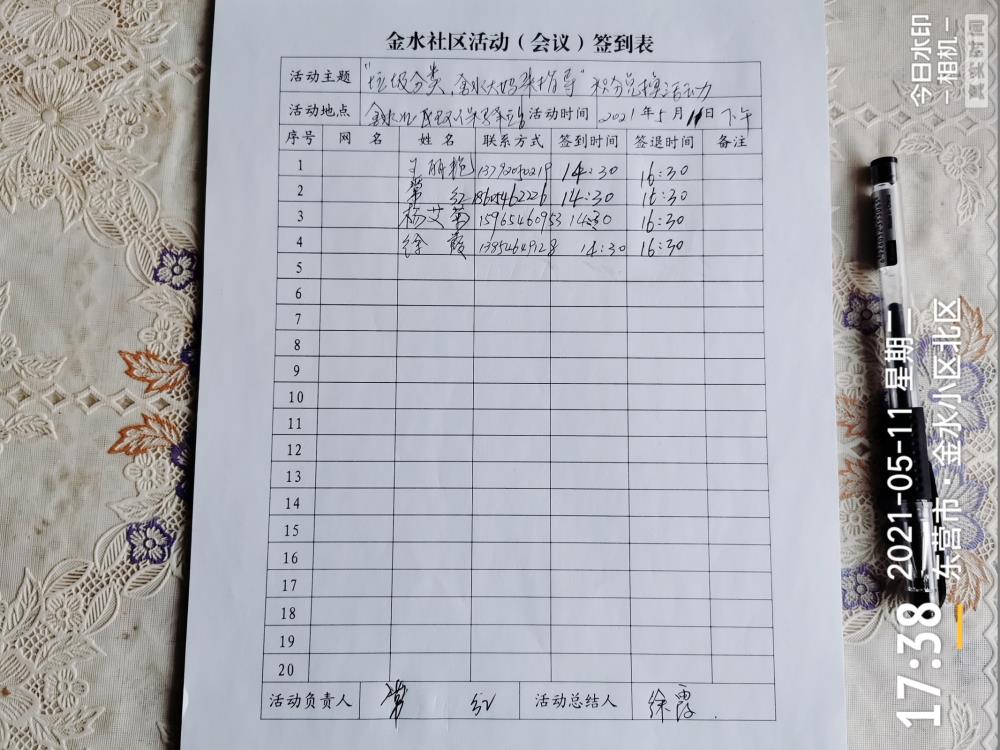 金水社区活动（会议）签到表
活动主题 "垃圾分类 金水大妈来指导"积分兑换活动
活动地点 金水 活动时间 2021年5月11日下午
序号 网名 姓名 联系方式 签到时间 签退时间 备注
1 王丽艳 13792050219 14:30 16:30
2 常红 18605462226 14:30 16:30
3 杨艾菊 15965460953 14:30 16:30
4 徐霞 13854649128 14:30 16:30
5
6
7
8
9
10
11
12
13
14
15
16
17
18
19
20
活动负责人 常红 活动总结人 徐霞.
今日水印
-相机-
真实时间
17:38
2021-05-11 星期二
东营市·金水小区北区